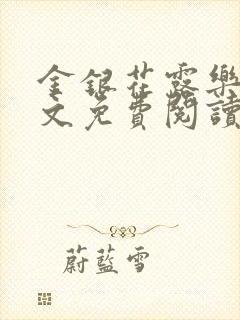 金銀花露樂
文免費閱讀
蔚藍雪